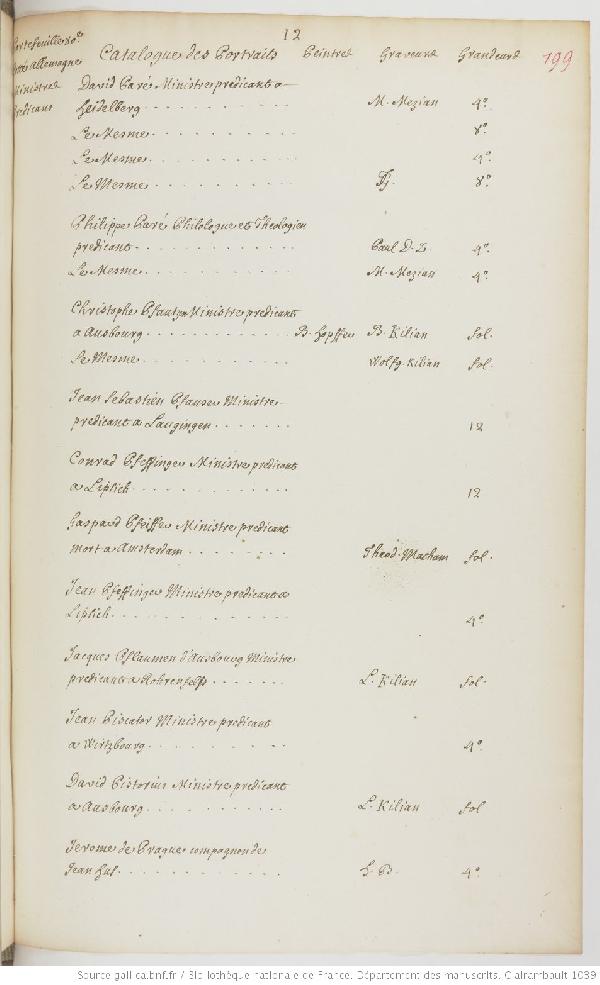 12
Portefeuille 80e
Catalogue des Portraits Peintres Graveurs Grandeurs
199
Portés allemagne
Ministres
Predicans
David Paré Ministre predicant a
heidelberg M. Mezian 4°
Le Mesme 8°
Le Mesme 4°
Le Mesme 8°
Philippe Paré Philologue et Theologien
predicant Paul D. Z. 4°
Le Mesme M. Mezian 4°
Christophe Ministre predicant
a Ausbourg B. hopffer B. Kilian fol.
Le Mesme Wolfg. Kilian fol.
Jean Sebastien Pfauser Ministre
predicant a Laugingen 12
Conrad Pfeffinger Ministre predicant
a Liplich 12
Gaspard Pfeiffer Ministre predicant
mort a Amsterdam Theod. Matham fol.
Jean Pfeffinger Ministre predicant a
Liplich 4°
Jacques Pflaumen d'Ausbourg Ministre
predicant a Rohrenfelss L. Kilian fol.
Jean Piscator Ministre predicant
a Wirtzbourg 4°
David Pistorius Ministre predicant
a Ausbourg L. Kilian fol
Jerome de Prague compagnon de
Jean hus H. B. 4°
Source gallica.bnf.fr / Bibliothèque nationale de France. Département des manuscrits. Clairambault 1039